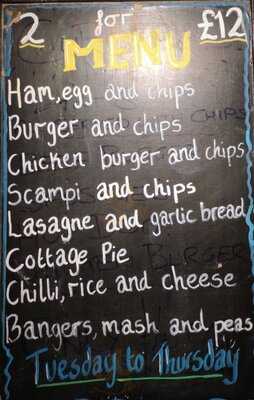 2 for £12
MENU
Ham, egg and chips
Burger and chips
Chicken burger and chips
Scampi and chips
Lasagne and garlic bread
Cottage Pie
Chilli, rice and cheese
Bangers, mash and peas
Tuesday to Thursday